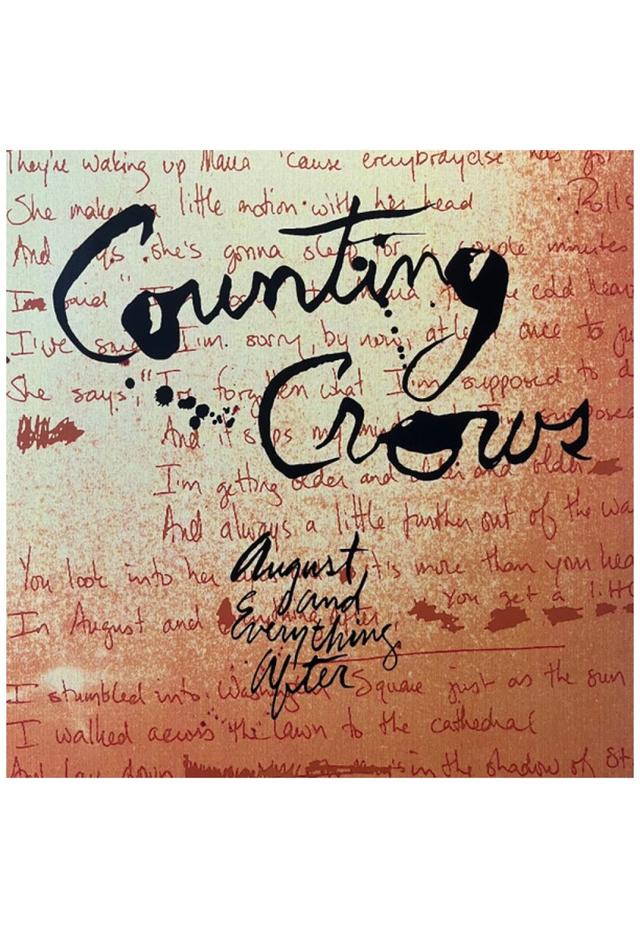 They're waking up Maria 'cause everybody else has got
She makes a little motion with her head Rolls
And says she's gonna sleep for a couple minutes
Counting
I said " I'm to Maria the cold
I've said I'm sorry, by now, at least once to ju
Crows
She says, " I've forgotten what I'm supposed to d
And it slips my mind I'm supposed
I'm getting older and older and older
And always a little further out of the wa
August
You look into her it's more than your hea
and
In August and Everything After, You get a litt
Everything
After
I stumbled into Washington Square just as the sun
I walked across the lawn to the cathedral
And lay down in the shadow of St